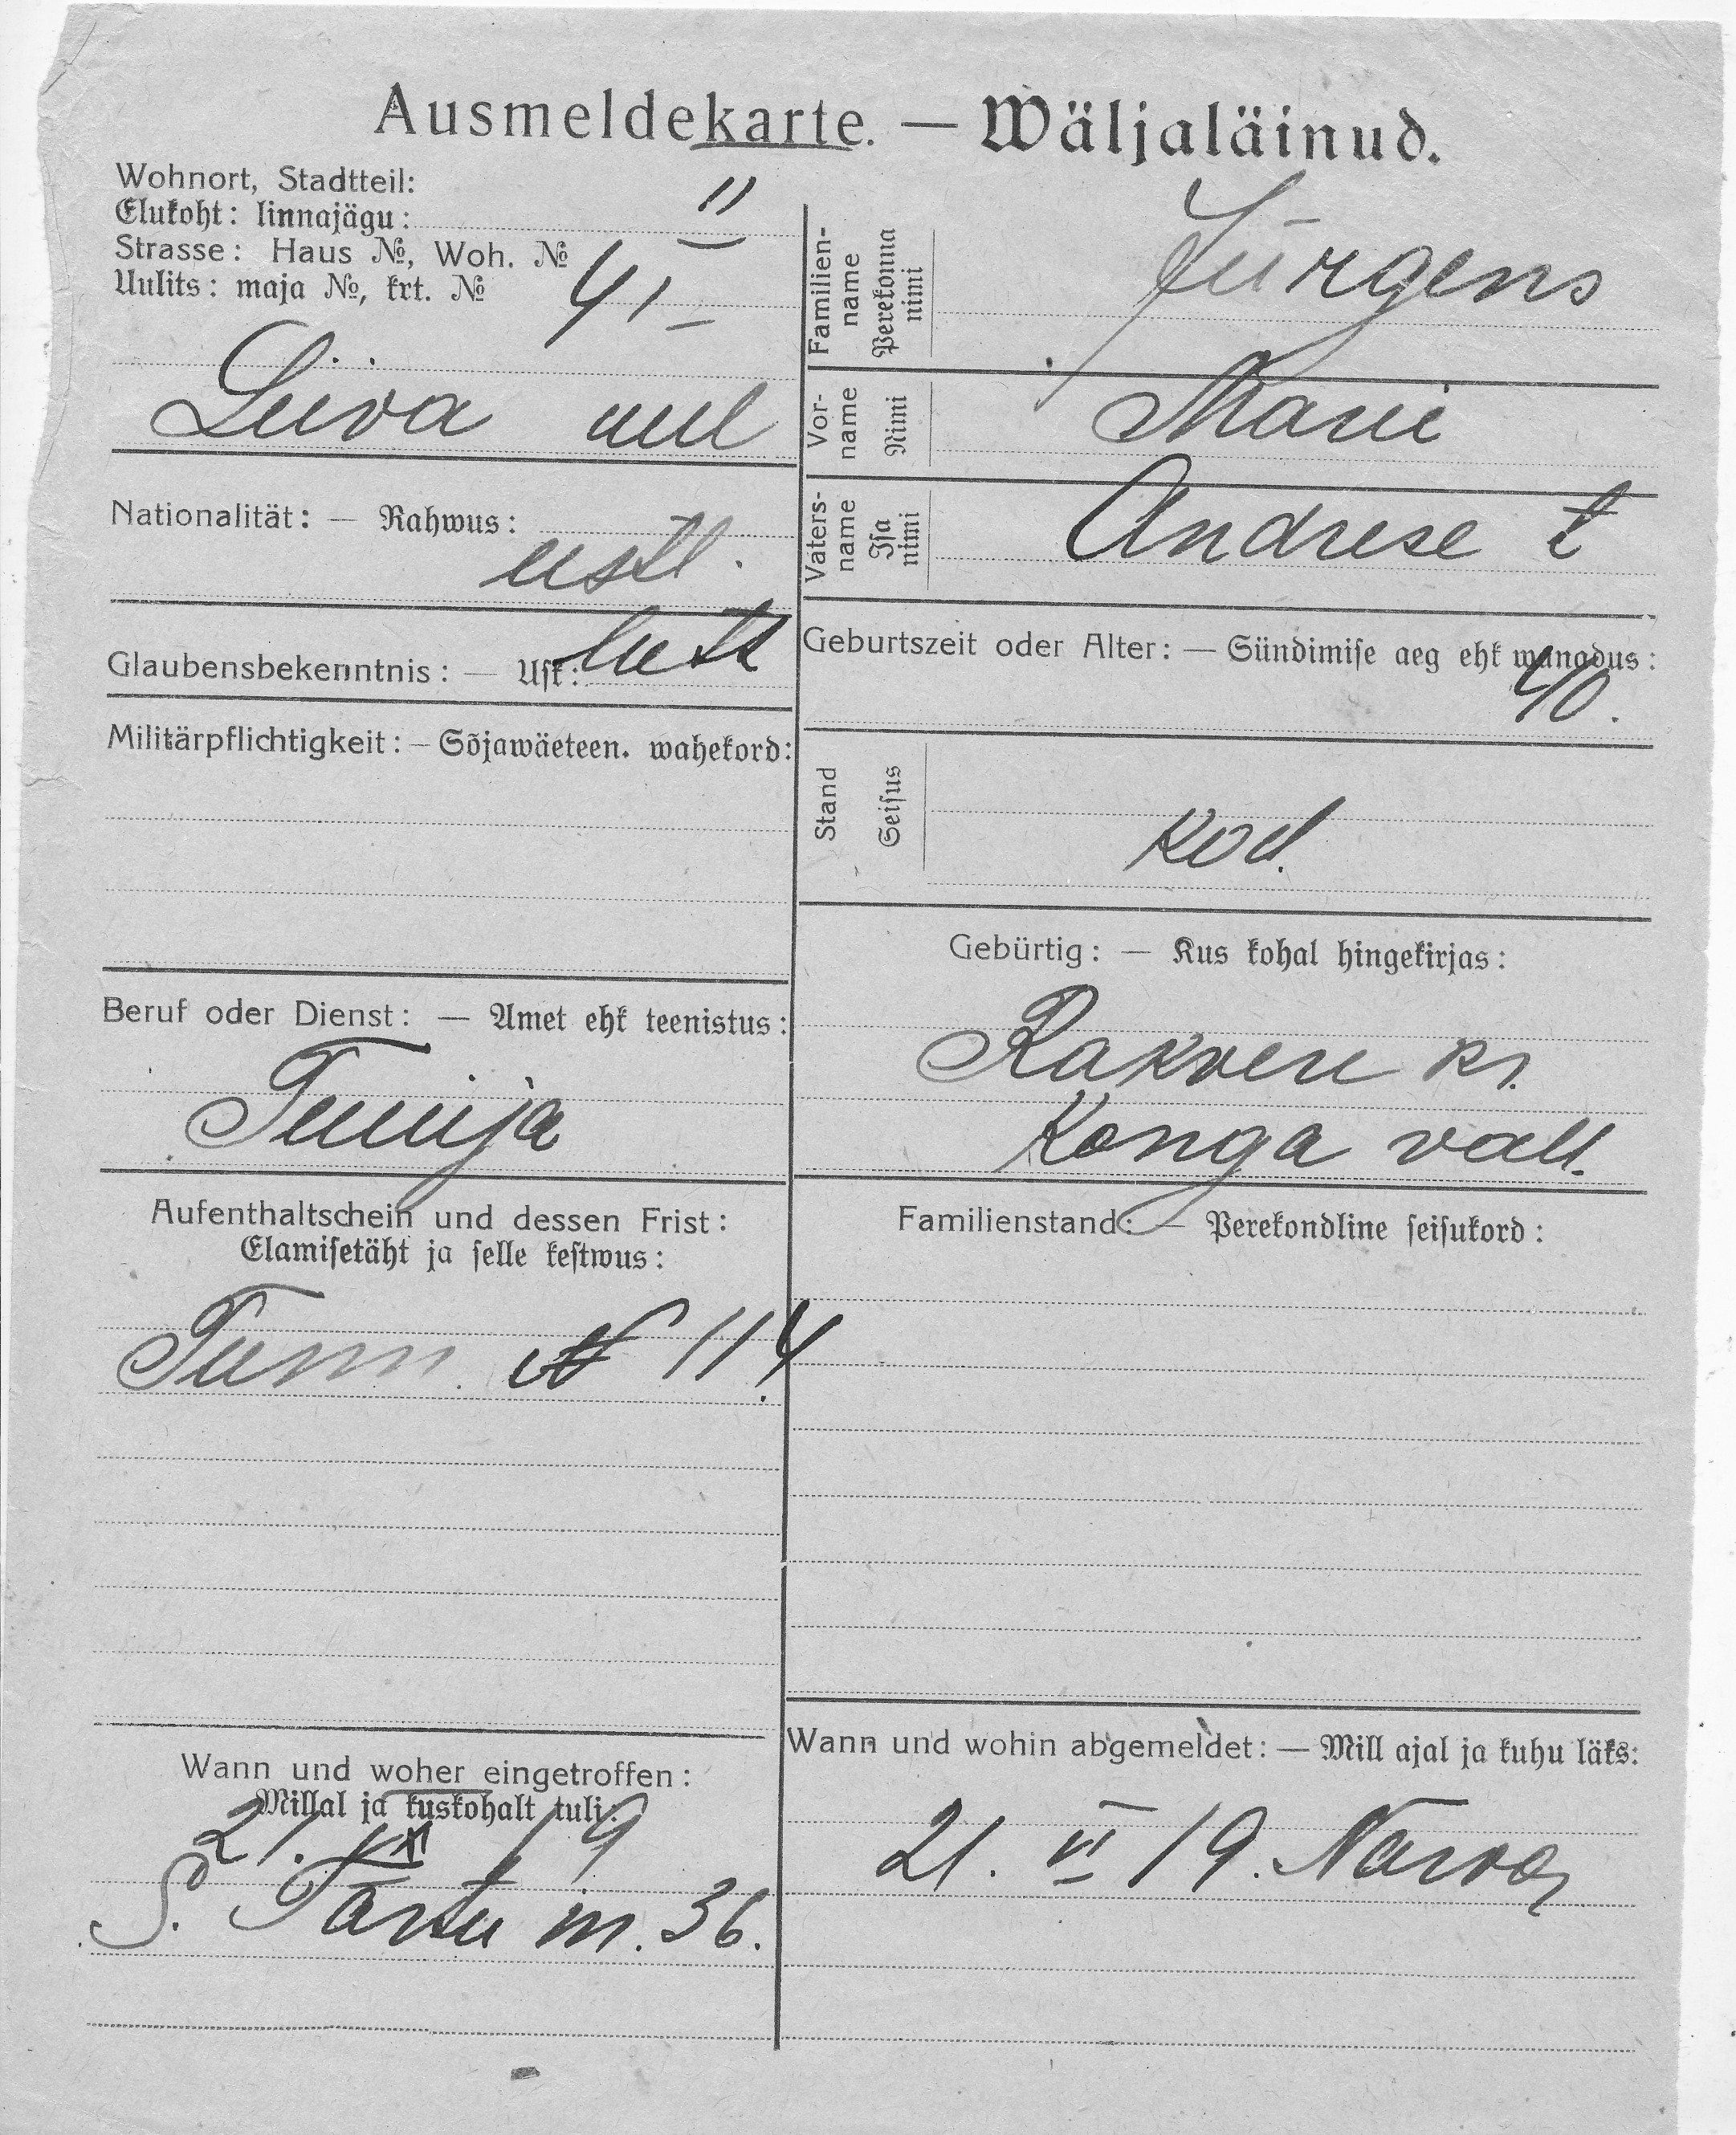 Ausmeldekarte. — Wäljaläinud.
Wohnort, Stadtteil:
Elukoht: linnajägu: II
Strasse: Haus №, Woh. №
Uulits: maja №, krt. № 41
Liiva uul
Nationalität: — Rahwus:
eestl.
Glaubensbekenntnis: — Usk: lutt
Militärpflichtigkeit: — Sõjawäeteen. wahekord:
Beruf oder Dienst: — Amet ehk teenistus:
Teenija
Aufenthaltschein und dessen Frist:
Elamisetäht ja selle kestwus:
Tunn. № 114.
Wann und woher eingetroffen:
Millal ja kuskohalt tuli:
21. 19
S. Tartu m. 36.
Familien-
name
Perekonna
nimi
Jürgens
Vor-
name
Nimi
Marie
Vaters-
name
Isa
nimi
Andrese t
Geburtszeit oder Alter: — Sündimise aeg ehk wanadus:
40.
Stand
Seisus
kod.
Gebürtig: — Kus kohal hingekirjas:
Rakvere kr.
Konga vall.
Familienstand: — Perekondline seisukord:
Wann und wohin abgemeldet: — Mill ajal ja kuhu läks:
21. VI 19. Narva